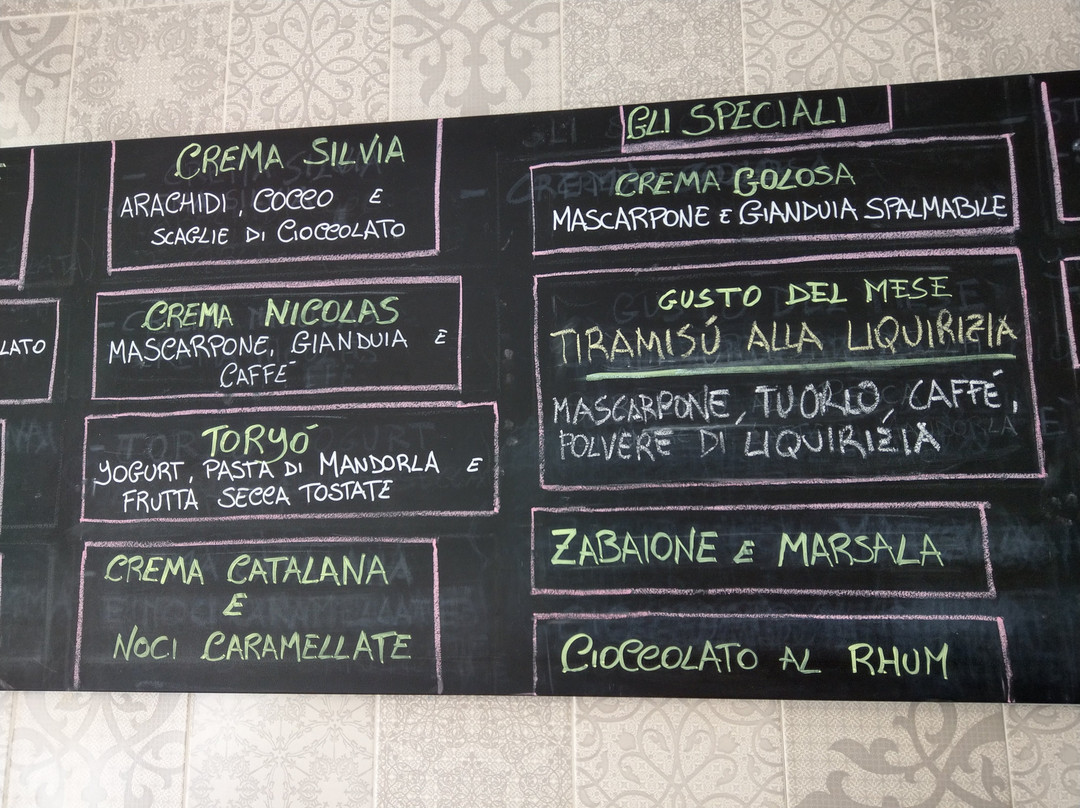 LATO
CREMA SILVIA
ARACHIDI, COCCO E
SCAGLIE DI CIOCCOLATO
CREMA NICOLAS
MASCARPONE, GIANDUIA E
CAFFÉ
TORYÓ
YOGURT, PASTA DI MANDORLA E
FRUTTA SECCA TOSTATE
CREMA CATALANA
E
NOCI CARAMELLATE
GLI SPECIALI
CREMA GOLOSA
MASCARPONE E GIANDUIA SPALMABILE
GUSTO DEL MESE
TIRAMISÚ ALLA LIQUIRIZIA
MASCARPONE, TUORLO, CAFFÉ,
POLVERE DI LIQUIRIZIA
ZABAIONE E MARSALA
CIOCCOLATO AL RHUM